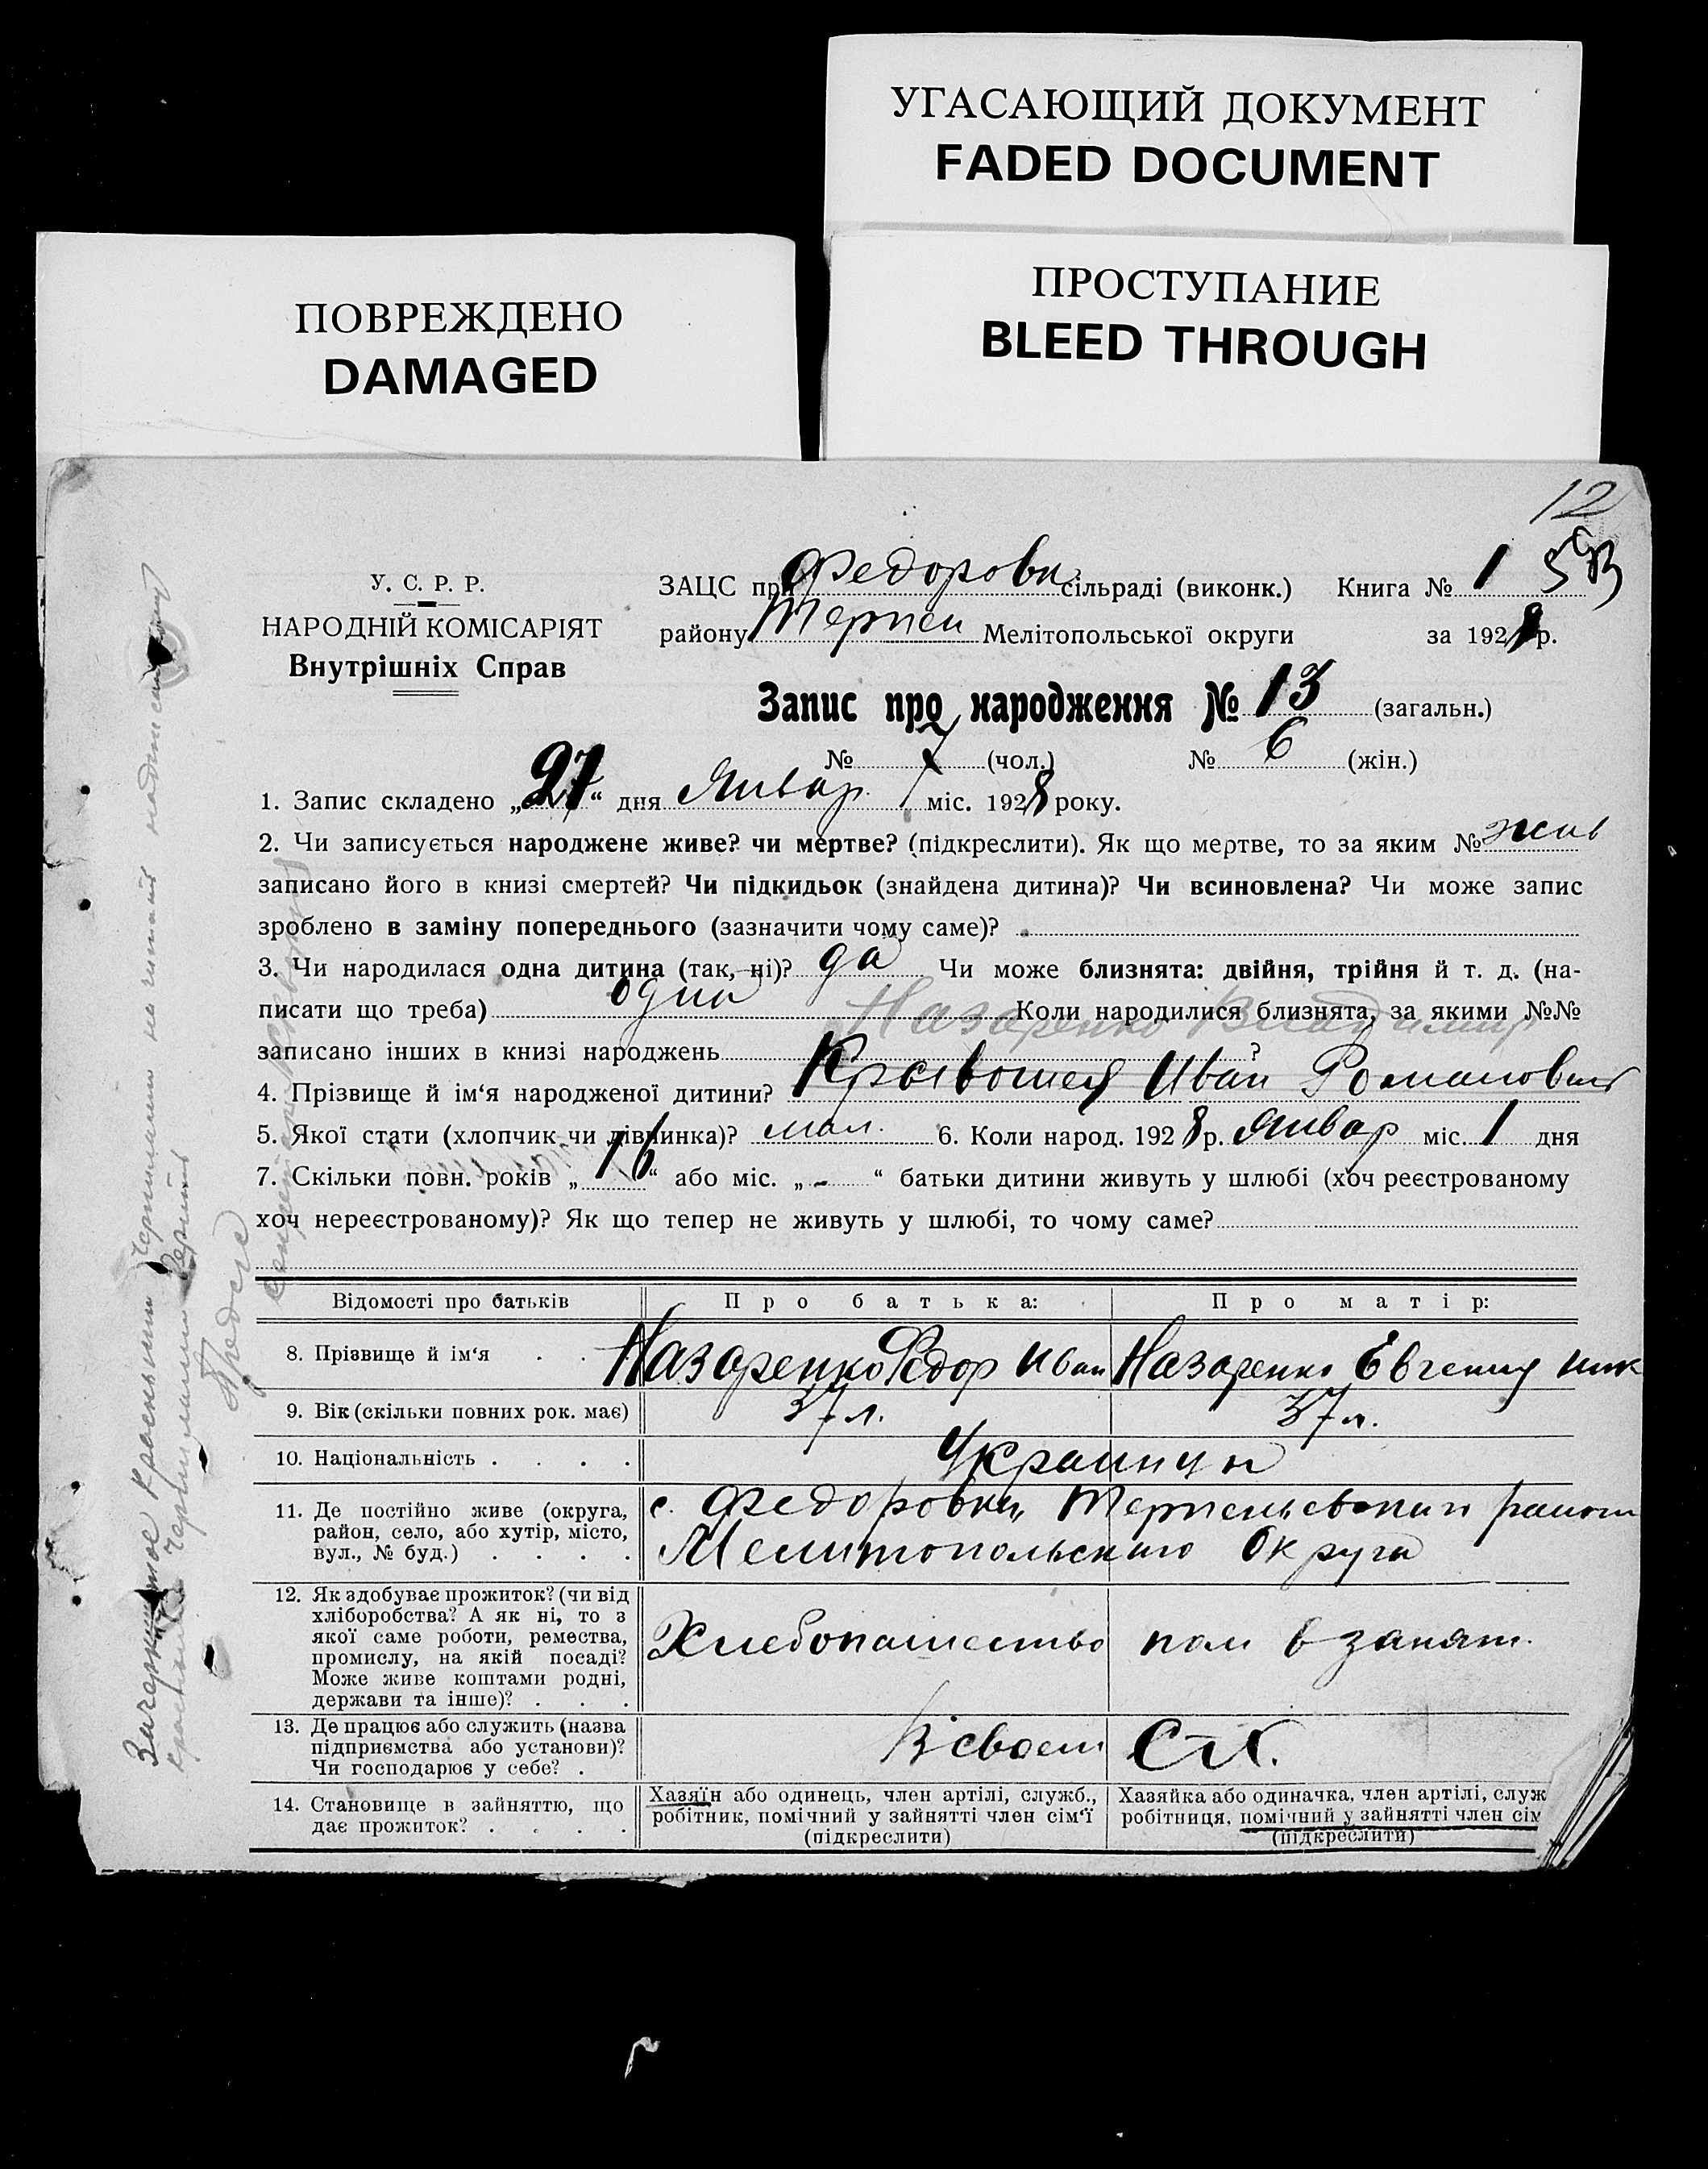 УГАСАЮЩИЙ ДОКУМЕНТ
FADED DOCUMENT
ПОВРЕЖДЕНО
DAMAGED
ПРОСТУПАНИЕ
BLEED THROUGH
12
У. С. Р. Р.
НАРОДНІЙ КОМІСАРІЯТ
Внутрішніх Справ
ЗАЦС при Федоровк. сільраді (виконк.) Книга № 1
району Терпен Мелітопольської округи за 1928 р.
Запис про народження № 13 (загальн.)
№ 7 (чол.) № 6 (жін.)
1. Запис складено „27“ дня Январ міс. 1928 року.
2. Чи записується народжене живе? чи мертве? (підкреслити). Як що мертве, то за яким № жив
записано його в книзі смертей? Чи підкидьок (знайдена дитина)? Чи всиновлена? Чи може запис
зроблено в заміну попереднього (зазначити чому саме)?
3. Чи народилася одна дитина (так, ні)? да Чи може близнята: двійня, трійня й т. д. (на-
писати що треба) одна Коли народилися близнята, за якими №№
Назаренко Владимир
записано інших в книзі народжень ?
4. Прізвище й ім‘я народженої дитини? Иван Романович
5. Якої стати (хлопчик чи дівчинка)? мал. 6. Коли народ. 1928 р. Январ міс. 1 дня
7. Скільки повн. років „16“ або міс. „-“ батьки дитини живуть у шлюбі (хоч реєстрованому
хоч нереєстрованому)? Як що тепер не живуть у шлюбі, то чому саме?
Відомості про батьків Про батька: Про матір:
8. Прізвище й ім‘я . . Назаренко Федор Иван Назаренко Евгения ник
9. Вік (скільки повних рок. має) 37 л. 37 л.
10. Національність . . . . Украинцы
11. Де постійно живе (округа,
район, село, або хутір, місто,
вул., № буд.) . . . .
с. Федоровка Терпеньевского района
Мелитопольского Округа
12. Як здобуває прожиток? (чи від
хліборобства? А як ні, то з
якої саме роботи, ремества,
промислу, на якій посаді?
Може живе коштами родні,
держави та інше)? . . .
Хлебопашество пом в занят.
13. Де працює або служить (назва
підприємства або установи)?
Чи господарює у себе? .
В своем С-Х.
14. Становище в зайняттю, що
дає прожиток? . . . .
Хазяїн або одинець, член артілі, служб.,
робітник, помічний у зайнятті член сім‘ї
(підкреслити)
Хазяйка або одиначка, член артілі, служ
робітниця, помічний у зайнятті член сім
(підкреслити)
Зачеркнутое красными чернилами не читать надписанному
красными чернилами верить